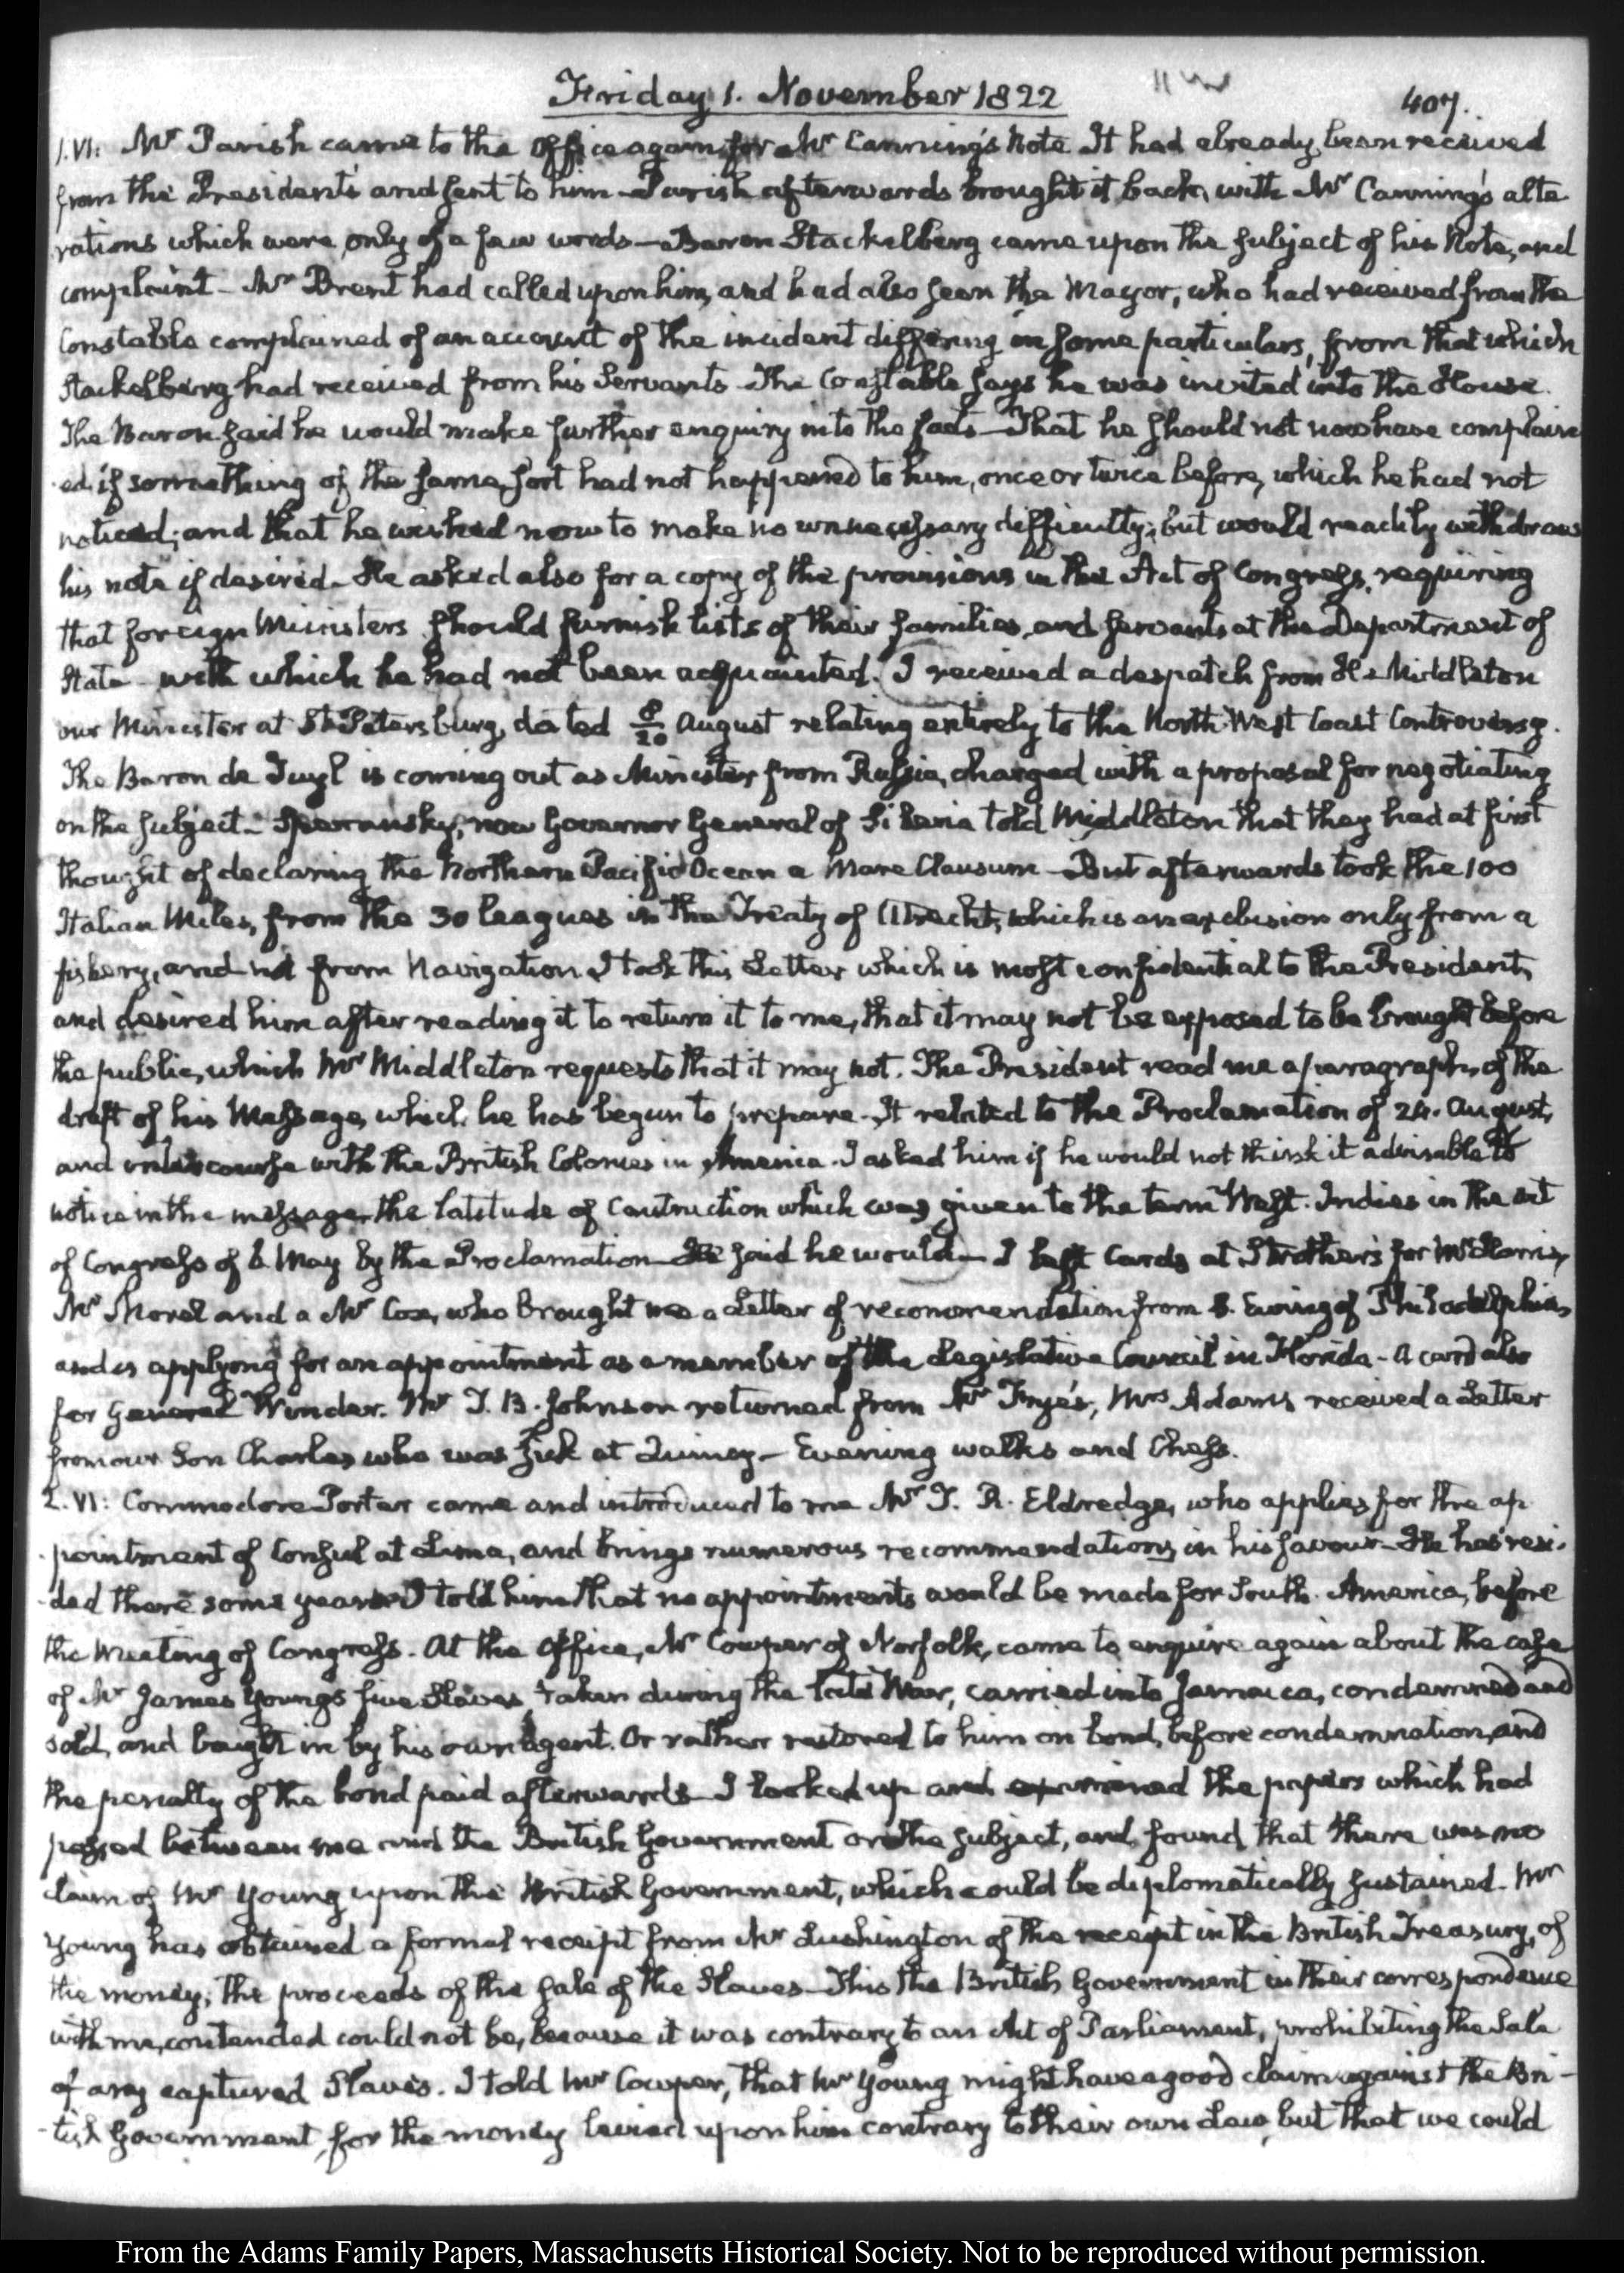 Friday 1. November 1822
407.
1. VI: Mr Parish came to the Office again for Mr Canning's Note It had already been received
from the President's and sent to him — Parish afterwards brought it back, with Mr Canning's alte
rations which were only of a few words — Baron Stackelberg came upon the subject of his Note, and
complaint — Mr Brent had called upon him, and had also seen the Mayor, who had received from the
Constable complained of an account of the incident differing in some particulars, from that which
Stackelberg had received from his Servants — The Constable says he was invited into the House.
The Baron said he would make further enquiry into the facts — That he should not now have complain
ed if something of the same sort had not happened to him, once or twice before, which he had not
noticed; and that he wished now to make no unnecessary difficulty; but would readily withdraw
his note if desired — He asked also for a copy of the provisions in the Act of Congress, requiring
that foreign Ministers should furnish lists of their families, and servants at the Department of
State — with which he had not been acquainted. I received a despatch from H. Middleton
our Minister at St. Petersburg, dated 8/20 August relating entirely to the North-West Coast Controversy.
The Baron de Tuyl is coming out as Minister from Russia, charged with a proposal for negotiating
on the subject — Speransky, now Governor General of Siberia told Middleton that they had at first
thought of declaring the Northern Pacific Ocean a Mare Clausum — But afterwards took the 100
Italian Miles, from the 30 leagues in the Treaty of Utrecht, which is an exclusion only from a
fishery, and not from Navigation. I took this Letter which is most confidential to the President,
and desired him after reading it to return it to me, that it may not be exposed to be brought before
the public, which Mr Middleton requests that it may not. The President read me a paragraph, of the
draft of his Message, which he has begun to prepare — It related to the Proclamation of 24. August,
and intercourse with the British Colonies in America. I asked him if he would not think it advisable to
notice in the message the latitude of Construction which was given to the term West-Indies in the act
of Congress of 6 May by the Proclamation — He said he would — I left Cards at Strother's for Mr Harris,
Mr Morel and a Mr Cox, who brought me a Letter of recommendation from S. Ewing of Philadelphia,
and is applying for an appointment as a member of the Legislative Council in Florida — A card also
for General Winder. Mr T. B. Johnson returned from Mr Frye's, Mrs Adams received a Letter
from our Son Charles who was sick at Quincy — Evening walks and Chess.
2. VI: Commodore Porter came and introduced to me Mr T. R. Eldredge, who applies for the ap
pointment of Consul at Lima, and brings numerous recommendations in his favour — He has resi-
ded there some years — I told him that no appointments would be made for South-America, before
the meeting of Congress. At the Office, Mr Cowper of Norfolk, came to enquire again about the case
of Mr James Youngs five Slaves, taken during the late War, carried into Jamaica, condemned and
sold, and bought in by his own Agent. Or rather restored to him on bond, before condemnation, and
the penalty of the bond paid afterwards — I looked up and examined the papers which had
passed between me and the British Government on the subject, and found that there was no
claim of Mr Young upon the British Government, which could be diplomatically sustained — Mr
Young has obtained a formal receipt from Mr Lushington of the receipt in the British Treasury, of
the money, the proceeds of the sale of the Slaves — This the British Government in their correspondence
with me, contended could not be, because it was contrary to an Act of Parliament, prohibiting the Sale
of any captured Slaves. I told Mr Cowper, that Mr Young might have a good claim against the Bri-
-tish Government, for the money levied upon him contrary to their own Law, but that we could
From the Adams Family Papers, Massachusetts Historical Society. Not to be reproduced without permission.